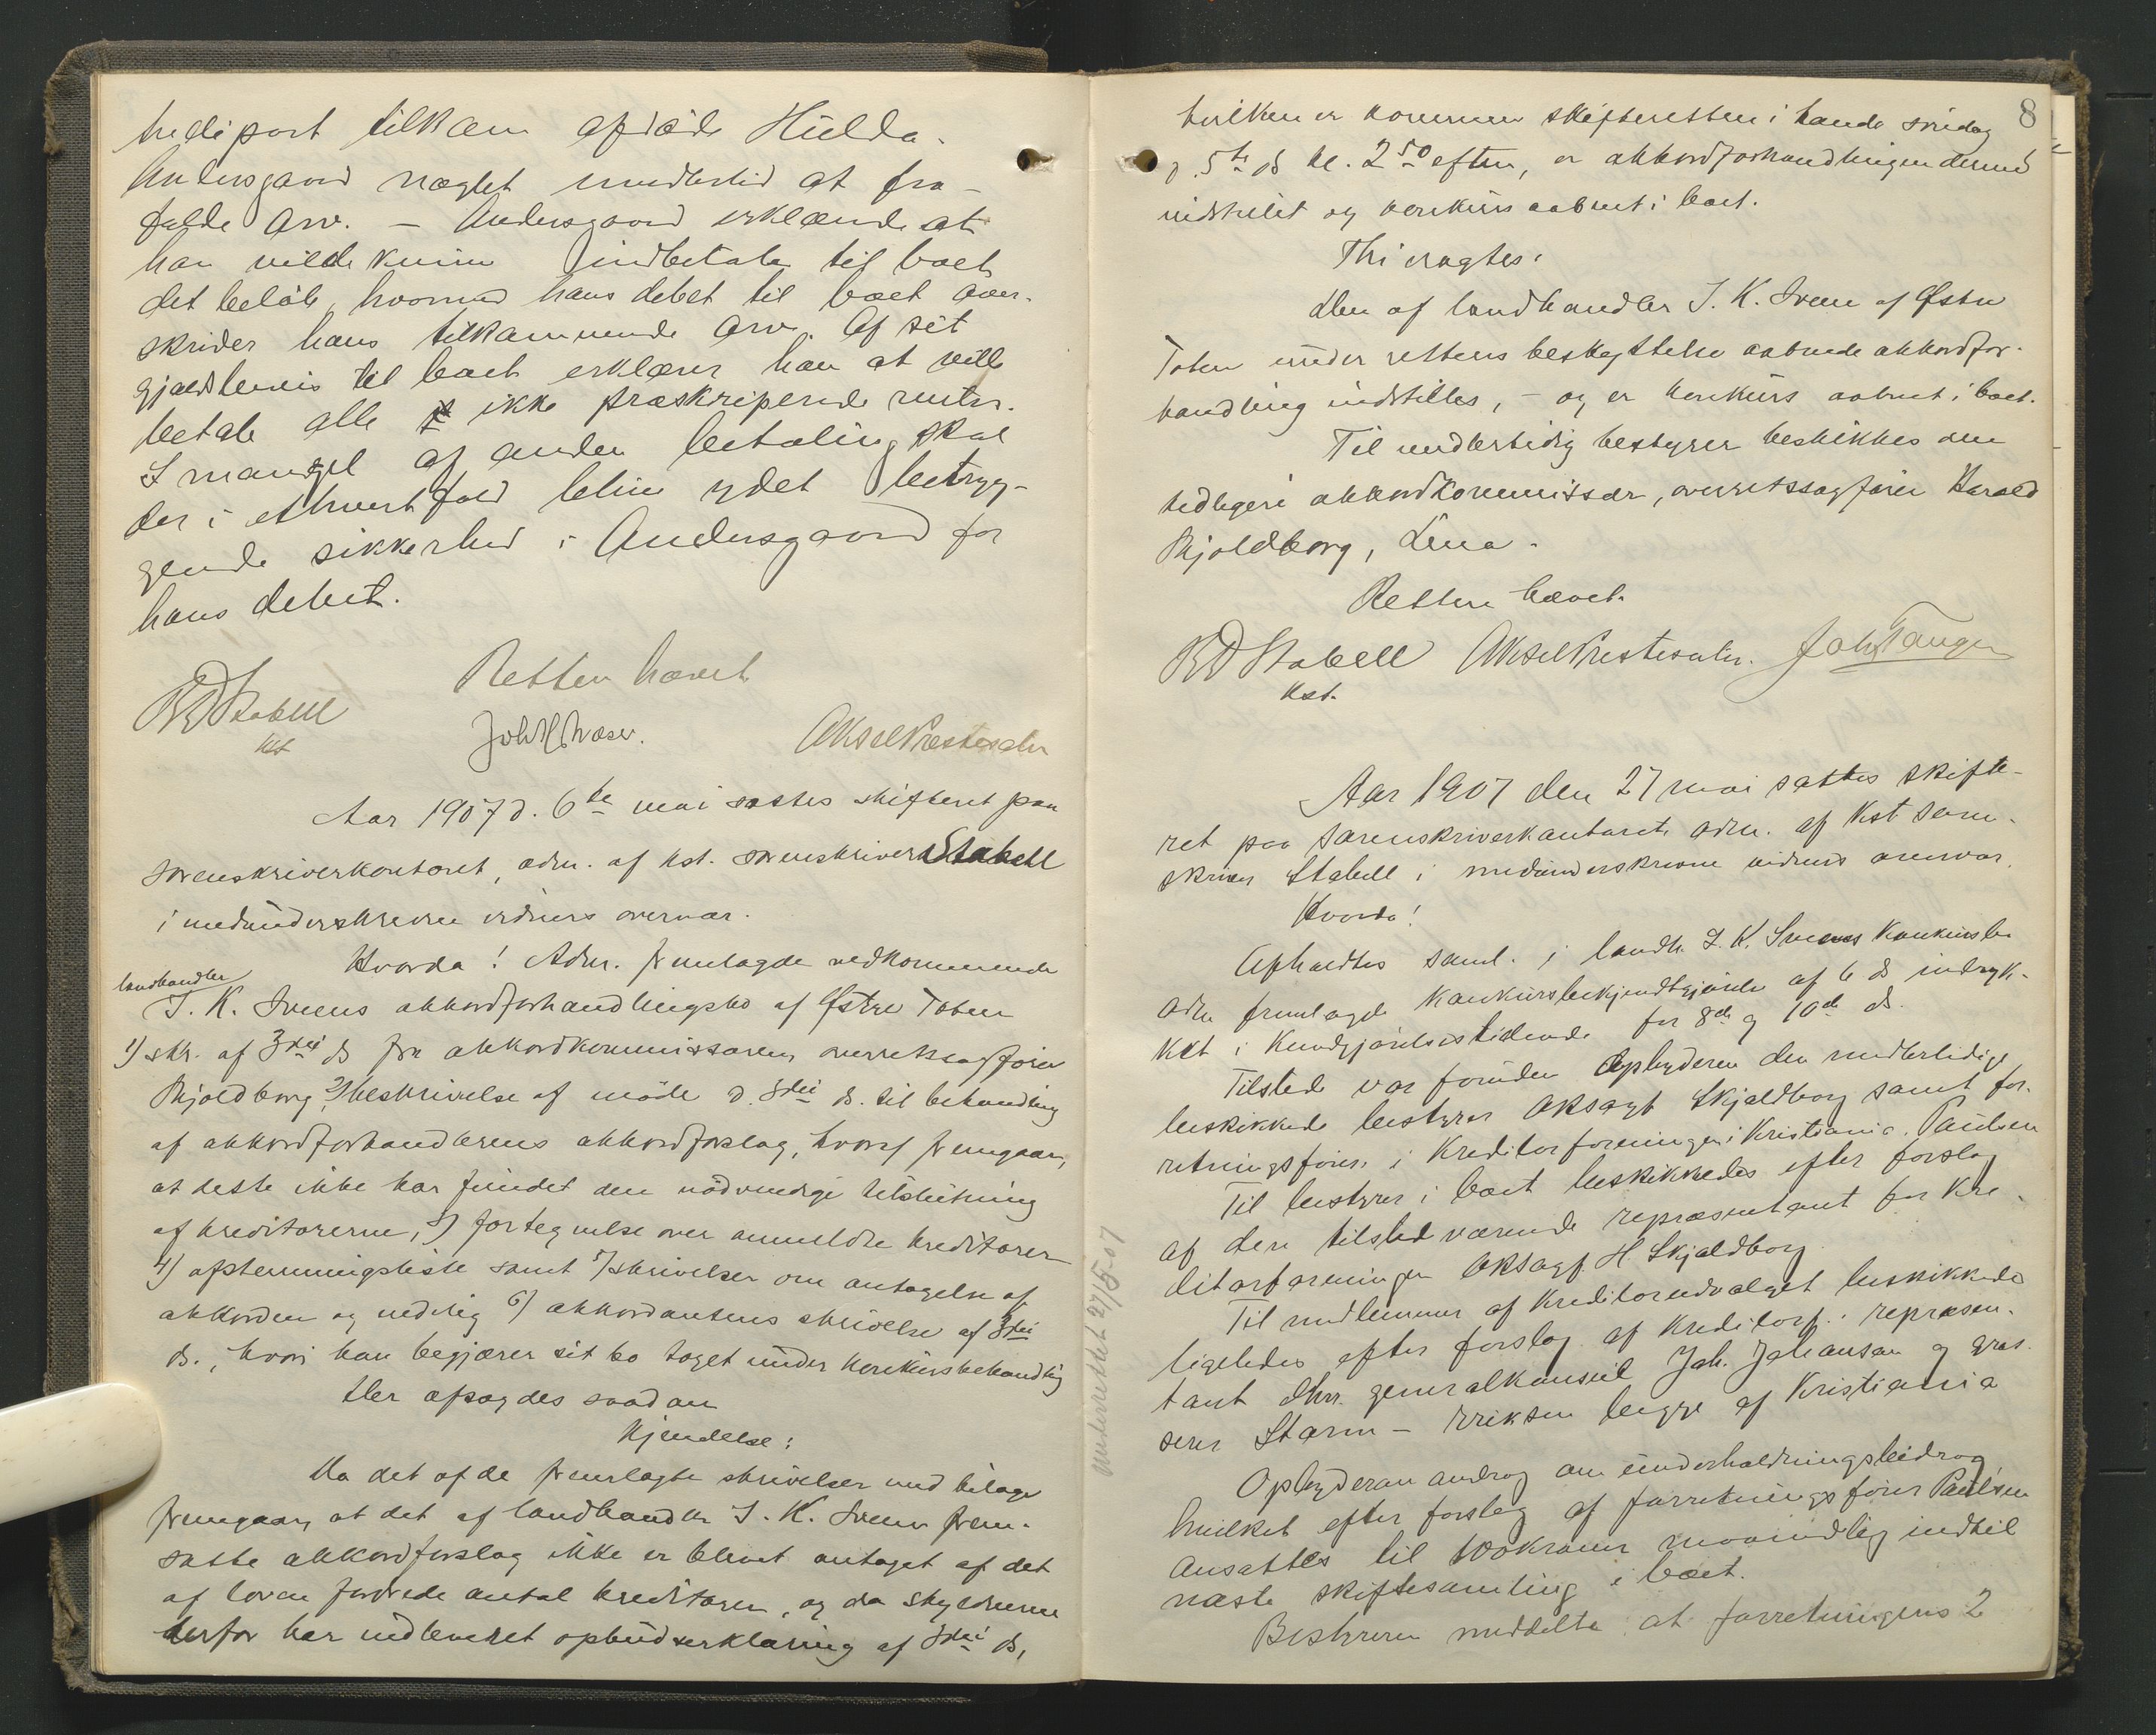 tredipart tilkom afdøde Hulda.
Andersgaard nægtet imidlertid at fra-
falde arv. – Andersgaard erklærede at
han vilde kunne indbetale til boet
det beløb, hvormed hans debet til boet over-
skrider hans tilkommende arv. Af sit
gjældsbevis til boet erklærer han at ville
betale alle ikke præskriperede renter.
I mangel af anden betaling skal
der i ethvert fald blive ydet betryg-
gende sikkerhed i Andersgaard for
hans debet.
Retten hævet
BDStabell
kst
Joh
Aksel Prestesæter
Aar 1907 d. 6te mai sattes skifteret paa
sorenskriverkontoret, adm. af kst. sorenskriver Stabell
i medunderskrevne vidners overvær.
Hvorda! Adm. fremlagde vedkommende
landhandler
I. K. Sveens akkordforhandlingsbo af Østre Toten
1) skr. af 3dei ds fra akkordkommissæren, overretssagfører
Skjoldborg, 2) beskrivelse af møde d. 3dei ds. til behandling
af akkordforhandlerens akkordforslag, hvoraf fremgaar,
at dette ikke har fundet den nødvendige tilslutning
af kreditorerne, 3) fortegnelse over anmeldte kreditorer
4) afstemningsliste samt 5) skrivelser om antagelse af
akkorden og nedelig 6) akkordantens skrivelse af 3dei
ds., hvori han begjærer sit bo taget under konkursbehandlig
Der afsagdes saadan
Kjendelse:
Da det af de fremlagte skrivelser med bilage
fremgaar, at det af landhandler I. K. Sveen frem-
satte akkordforslag ikke er blevet antaget af det
af loven fordrede antal kreditorer, og da skyldneren
derfor har indleveret opbudserklæring af 3dei ds,
8
hvilken er kommen skifteretten i hænde søndag
d. 5te ds kl. 2 50 efterm, er akkordforhandlingen dermed
indstillet og konkurs aabnet i boet.
Thi eragtes:
Den af landhandler I. K. Sveen af Østre
Toten under rettens beskyttelse aabnede akkordfor-
handling indstilles, – og er konkurs aabnet i boet.
Til midlertidig bestyrer beskikkes den
tidligere akkordkommissær, overretssagfører Harald
Skjoldborg, Lena.
Retten hævet.
BDStabell Aksel Prestesæter. Joh Tangen
Kst.
Aar 1907 den 27 mai sattes skifte-
ret paa sorenskriverkontoret adm. af kst soren-
skriver Stabell i medunderskrevne vidners overvær.
Hvorda!
Afholdtes saml. i landh. I. K. Sveens konkursbo
Adm fremlagde konkursbekjendtgjørelse af 6 ds indryk-
ket i Kundgjørelsestidende for 8de og 10de ds.
Tilstede var foruden opbyderen den midlertidige
beskikkede bestyrer Oksagf Skjoldborg samt for-
retningsfører i Kreditorforeningen i Kristiania Paulsen
Til bestyrer i boet beskikkedes efter forslag
af den tilstedværende repræsentant for kre-
ditorforeningen Oksagf. H. Skjoldborg
Til medlemmer af kreditorudvalget beskikkedes
ligeledes efter forslag af kreditorf. repræsen-
tant dhrr. generalkonsul Joh. Johansen og gros-
serer Storm – Eriksen begge af Kristiania
Opbyderen androg om underholdningsbidrag,
hvilket efter forslag af forretningsfører Paulsen
ansattes til 100 kroner maanedlig indtil
næste skiftesamling i boet.
Bestyreren meddelte at forretningens 2
underrettet 27/5-07